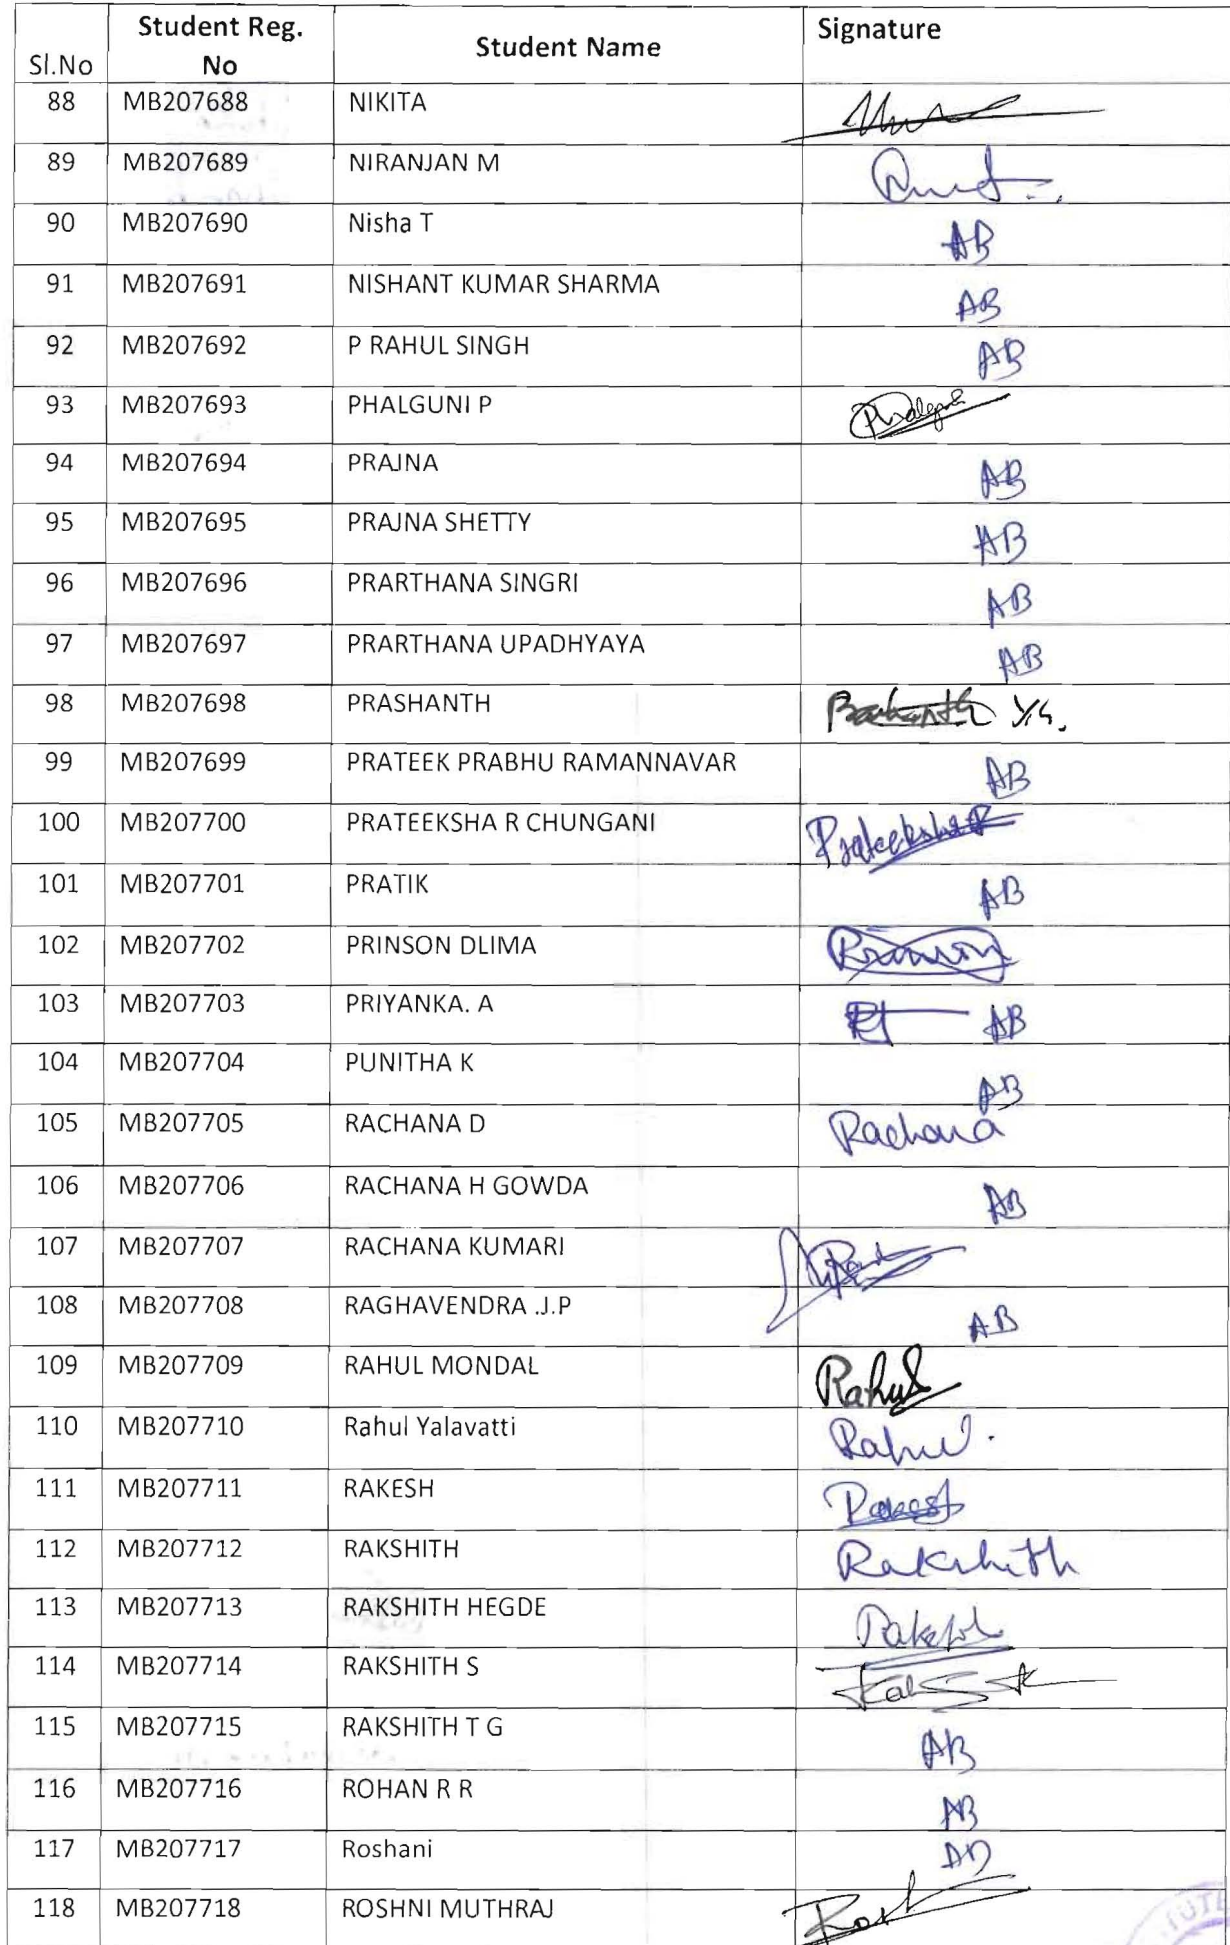 Sl.No Student Reg. No Student Name Signature
88 MB207688 NIKITA
89 MB207689 NIRANJAN M
90 MB207690 Nisha T AB
91 MB207691 NISHANT KUMAR SHARMA AB
92 MB207692 P RAHUL SINGH AB
93 MB207693 PHALGUNI P
94 MB207694 PRAJNA AB
95 MB207695 PRAJNA SHETTY AB
96 MB207696 PRARTHANA SINGRI AB
97 MB207697 PRARTHANA UPADHYAYA AB
98 MB207698 PRASHANTH
99 MB207699 PRATEEK PRABHU RAMANNAVAR AB
100 MB207700 PRATEEKSHA R CHUNGANI Prateeksha R
101 MB207701 PRATIK AB
102 MB207702 PRINSON DLIMA
103 MB207703 PRIYANKA. A AB
104 MB207704 PUNITHA K AB
105 MB207705 RACHANA D Rachana
106 MB207706 RACHANA H GOWDA AB
107 MB207707 RACHANA KUMARI
108 MB207708 RAGHAVENDRA .J.P AB
109 MB207709 RAHUL MONDAL Rahul
110 MB207710 Rahul Yalavatti Rahul.
111 MB207711 RAKESH Rakesh
112 MB207712 RAKSHITH Rakshith
113 MB207713 RAKSHITH HEGDE
114 MB207714 RAKSHITH S
115 MB207715 RAKSHITH T G AB
116 MB207716 ROHAN R R AB
117 MB207717 Roshani AB
118 MB207718 ROSHNI MUTHRAJ